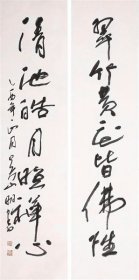 翠竹黄花皆佛性
清池皓月照禅心
乙酉年 月吴山明